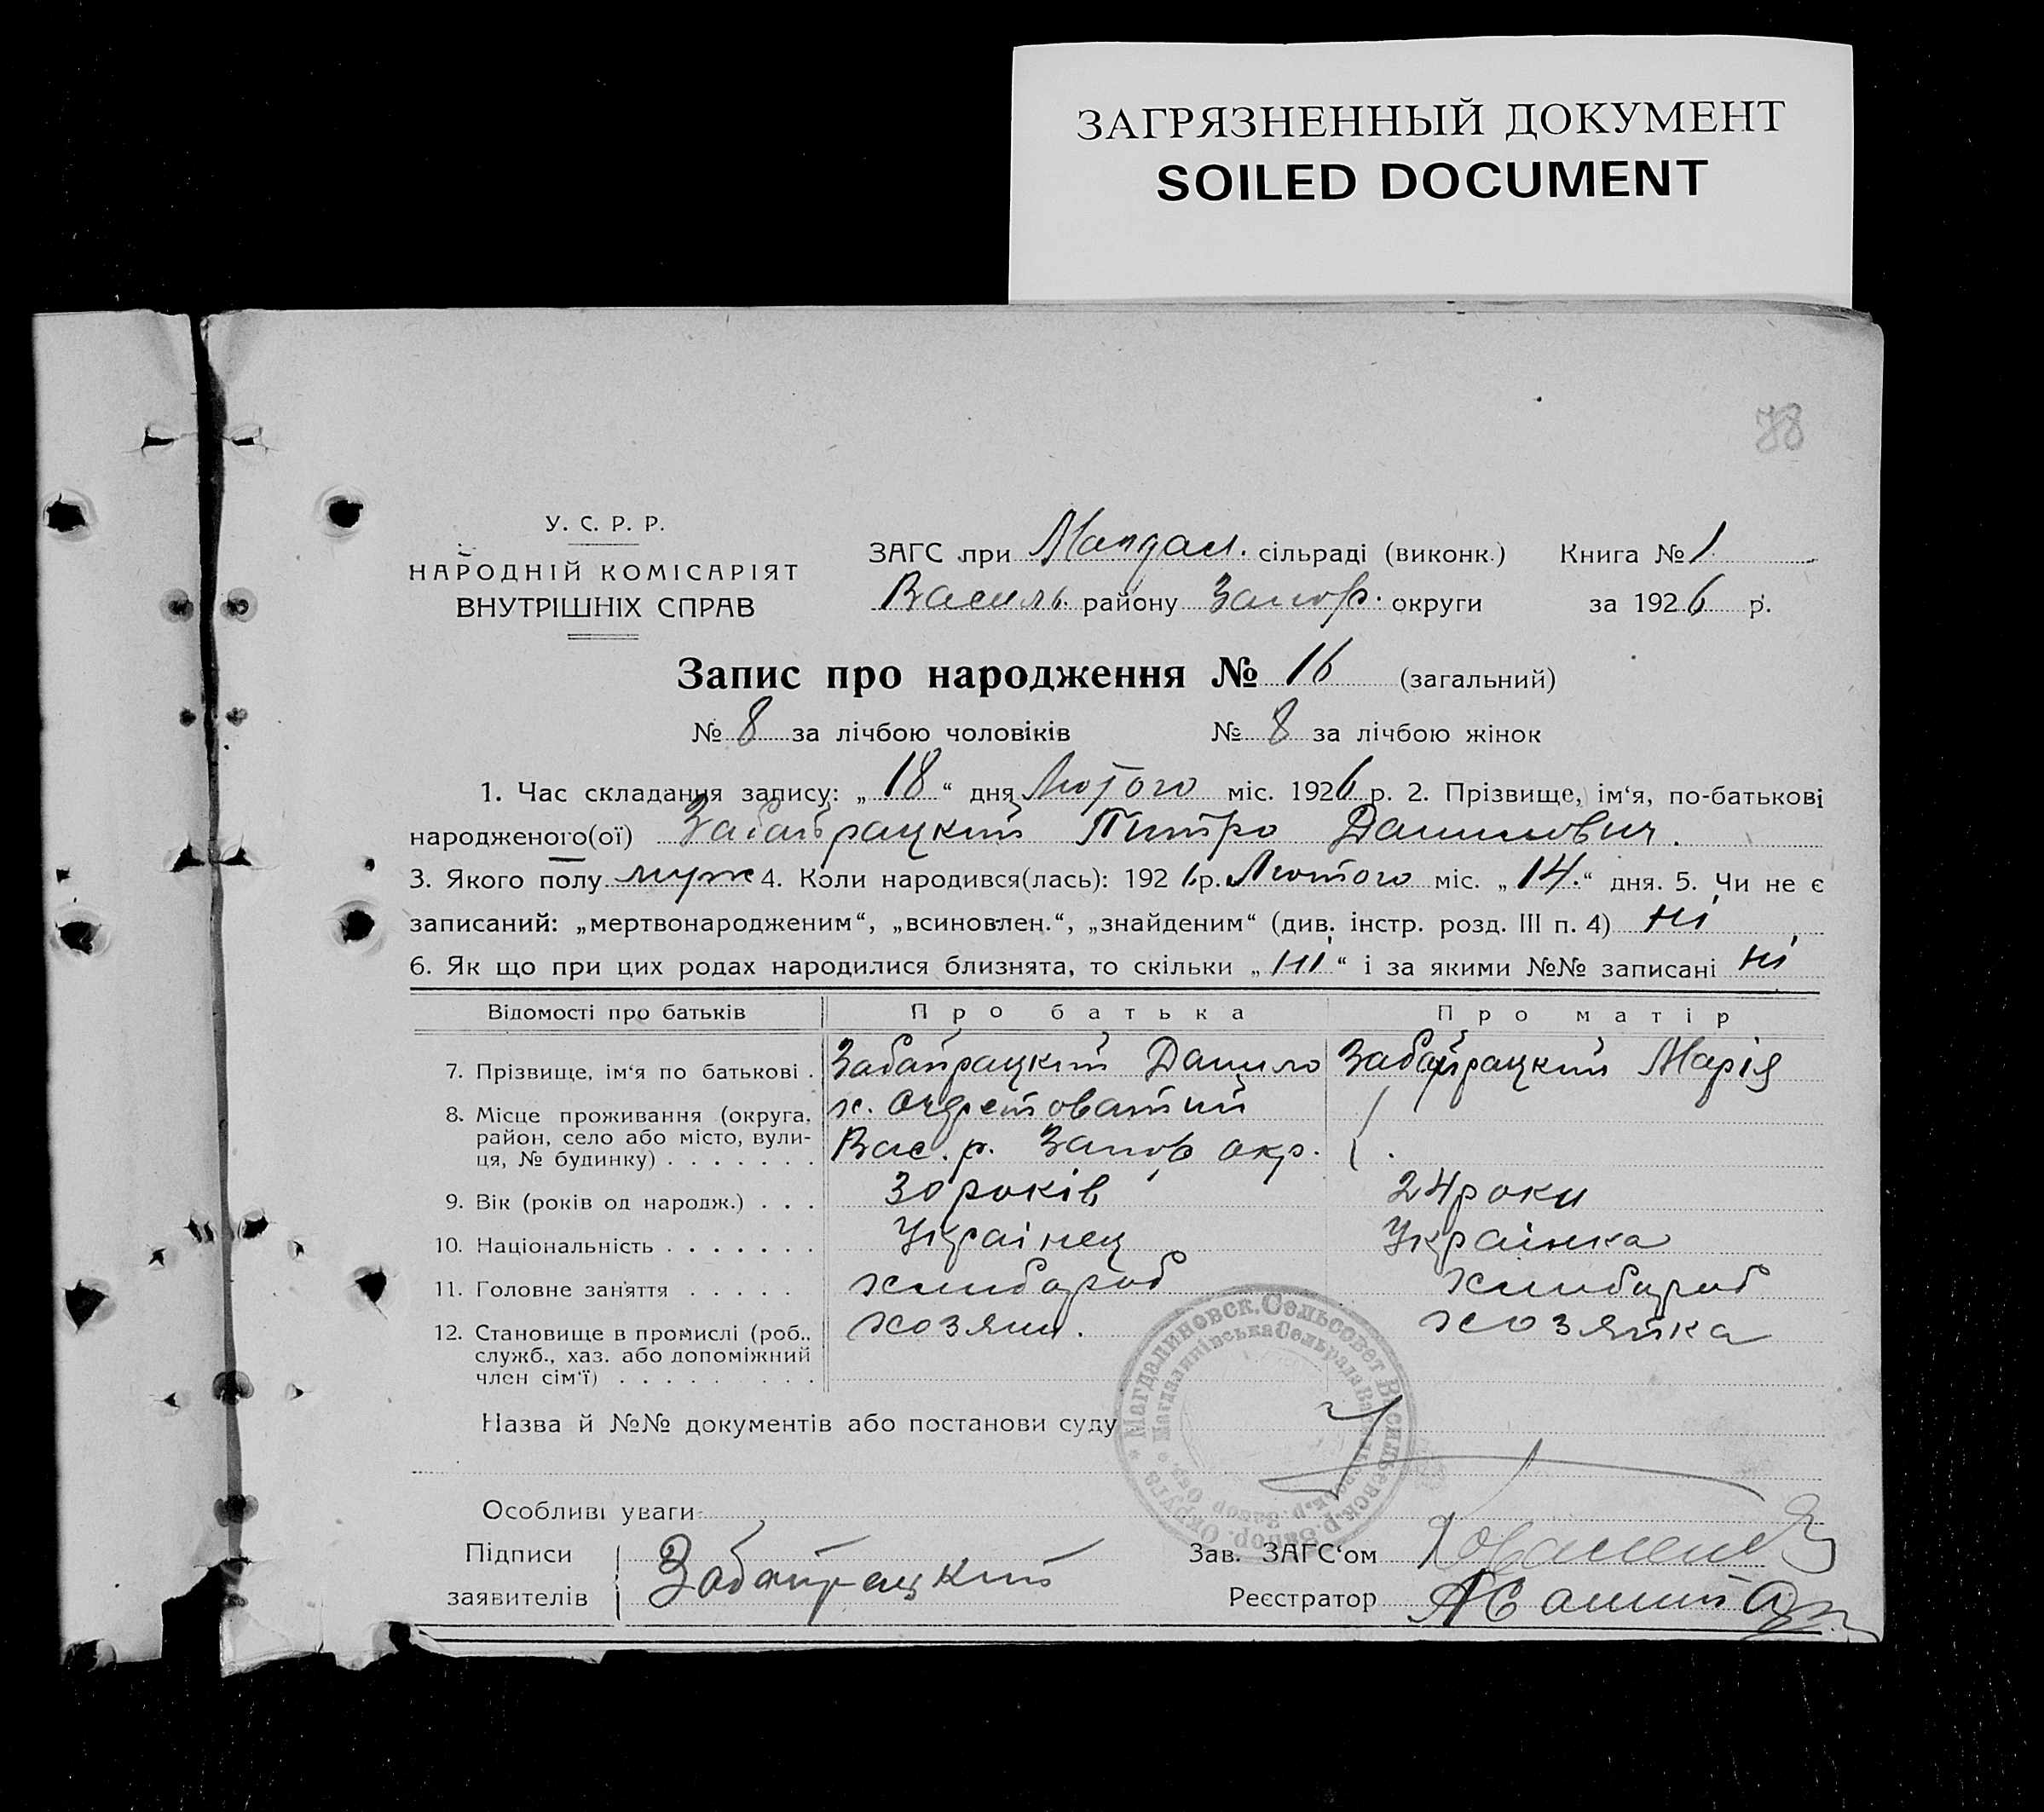 ЗАГРЯЗНЕННЫЙ ДОКУМЕНТ
SOILED DOCUMENT
88
У. С. Р. Р.
НАРОДНІЙ КОМІСАРІЯТ
ВНУТРІШНІХ СПРАВ
ЗАГС при Магдал. сільраді (виконк.) Книга № 1
Василь. району Запор. округи за 1926 р.
Запис про народження № 16 (загальний)
№ 8 за лічбою чоловіків № 8 за лічбою жінок
1. Час складання запису: „18“ дня Лютого міс. 1926 р. 2. Прізвище, ім‘я, по-батькові
народженого(ої) Забайрацкий Питро Данилович.
3. Якого полу муж 4. Коли народився(лась): 1926 р. Лютого міс. „14.“ дня. 5. Чи не є
записаний: „мертвонародженим“, „всиновлен.“, „знайденим“ (див. інстр. розд. III п. 4) Ні
6. Як що при цих родах народилися близнята, то скільки „Ні“ і за якими №№ записані Ні
Відомості про батьків Про батька Про матір
7. Прізвище, ім‘я по батькові . Забайрацкий Данило Забайрацкий Марія
8. Місце проживання (округа, х.
район, село або місто, вули- Вас. р. Запор окр.
ця, № будинку) . . . . . . .
9. Вік (років од народж.) . . . 30 років 24 роки
10. Національність . . . . . . . Українец Українка
11. Головне заняття . . . . . хлибороб хлибороб
12. Становище в промислі (роб., хозяин. хозяйка
служб., хаз. або допоміжний
член сім‘ї) . . . . . . . .
Магдалиновск. Сельсовет Васильевск. р. Запор. Округа
Магдалинівська Сельрада Васильевськ. р. Запор Окр.
Назва й №№ документів або постанови суду
Особливі уваги
Підписи Зав. ЗАГС‘ом
заявителів Забайрацкий Реєстратор